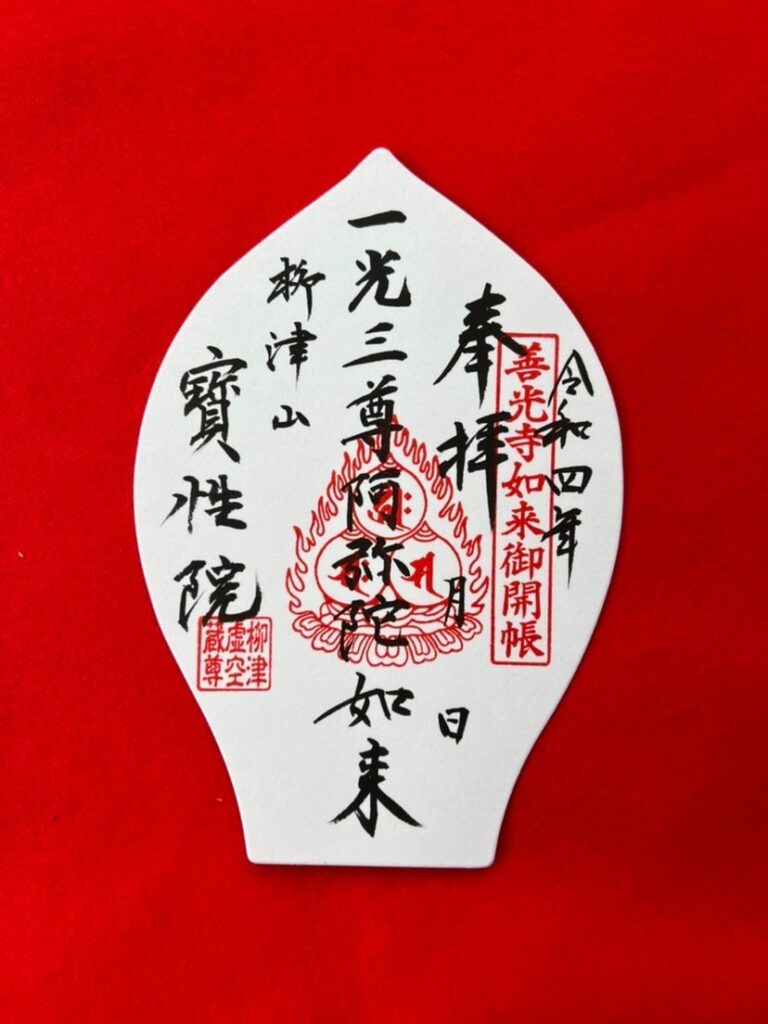 令和四年
善光寺如来御開帳
奉拝
月
日
一光三尊阿弥陀如来
柳津山
寳性院
柳津
虚空
蔵尊